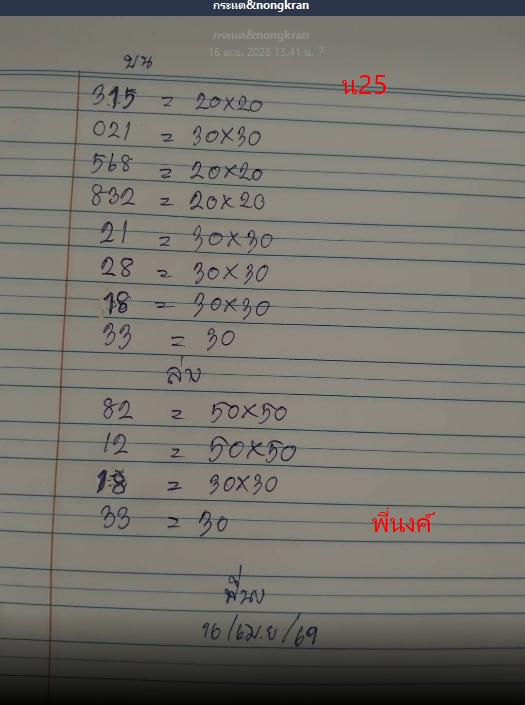 กระแต&nongkran
กระแต&nongkran
16 เม.ย. 2026 13.41 น.
บน
น25
315 = 20x20
021 = 30x30
568 = 20x20
832 = 20x20
21 = 30x30
28 = 30x30
18 = 30x30
33 = 30
ล่าง
82 = 50x50
12 = 50x50
18 = 30x30
33 = 30
พี่นงค์
พี่นง
16/เม.ย/69